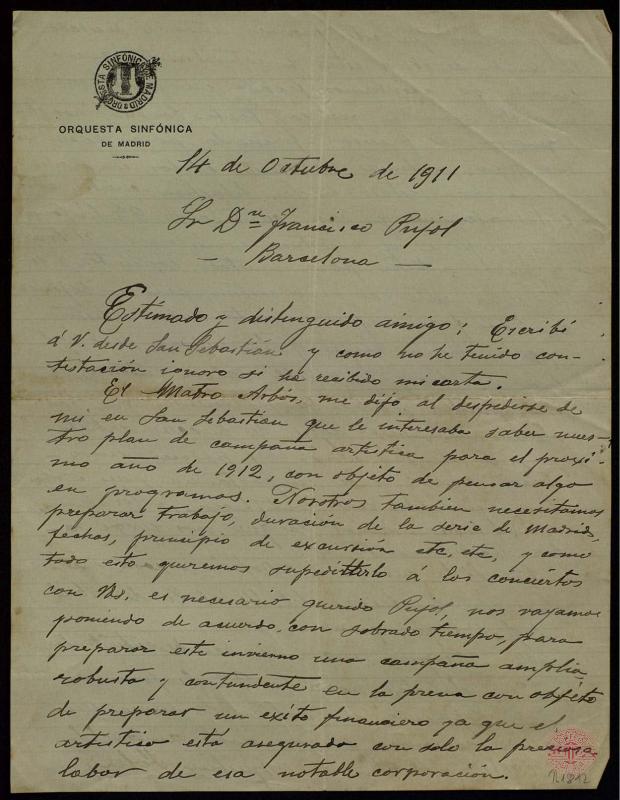 ORQUESTA SINFÓNICA DE MADRID
ORQUESTA SINFÓNICA
DE MADRID
14 de Octubre de 1911
Sr Dn Francisco Pujol
— Barcelona —
Estimado y distinguido amigo; Escribí
á V. desde San Sebastián y como no he tenido con-
testación ignoro si ha recibido mi carta.
El Matro Arbós, me dijo al despedirse de
mi en San Sebastian que le interesaba saber nues-
tro plan de campaña artistica para el proxi-
mo año de 1912, con objeto de pensar algo
en programas. Nosotros tambien necesitamos
preparar trabajo, duración de la serie de Madrid,
fechas, principio de excursión etc, etc, y como
todo esto queremos supeditarlo á los conciertos
con Vds. es necesario querido Pujol, nos vayamos
poniendo de acuerdo, con sobrado tiempo, para
preparar este invierno una campaña amplia,
robusta y contundente en la prensa con objeto
de preparar un exito financiero ya que el
artistico está asegurado con solo la preciosa
labor de esa notable corporación.